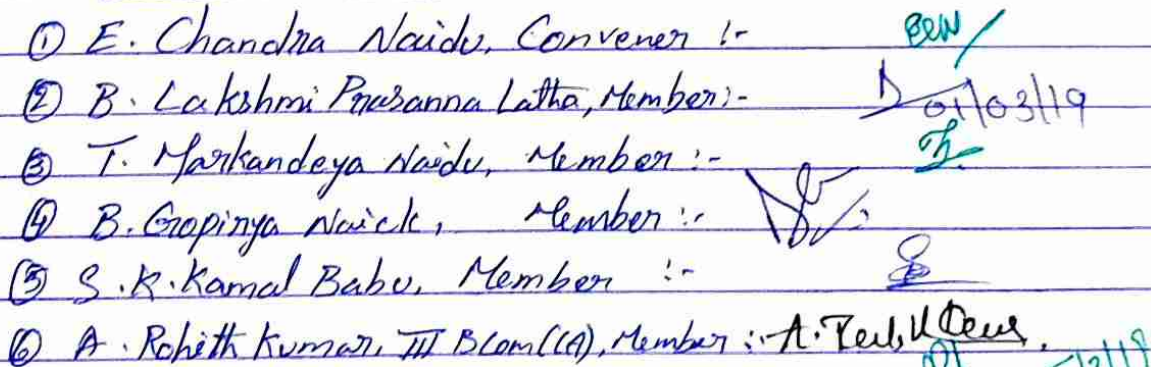 ① E. Chandra Naidu, Convener :-
② B. Lakshmi Prasanna Latha, Member :- 01/03/19
③ T. Markandeya Naidu, Member :-
④ B. Gopinya Naick, Member :-
⑤ S.K. Kamal Babu, Member :-
⑥ A. Rohith Kumar, III BCom(CA), Member :-